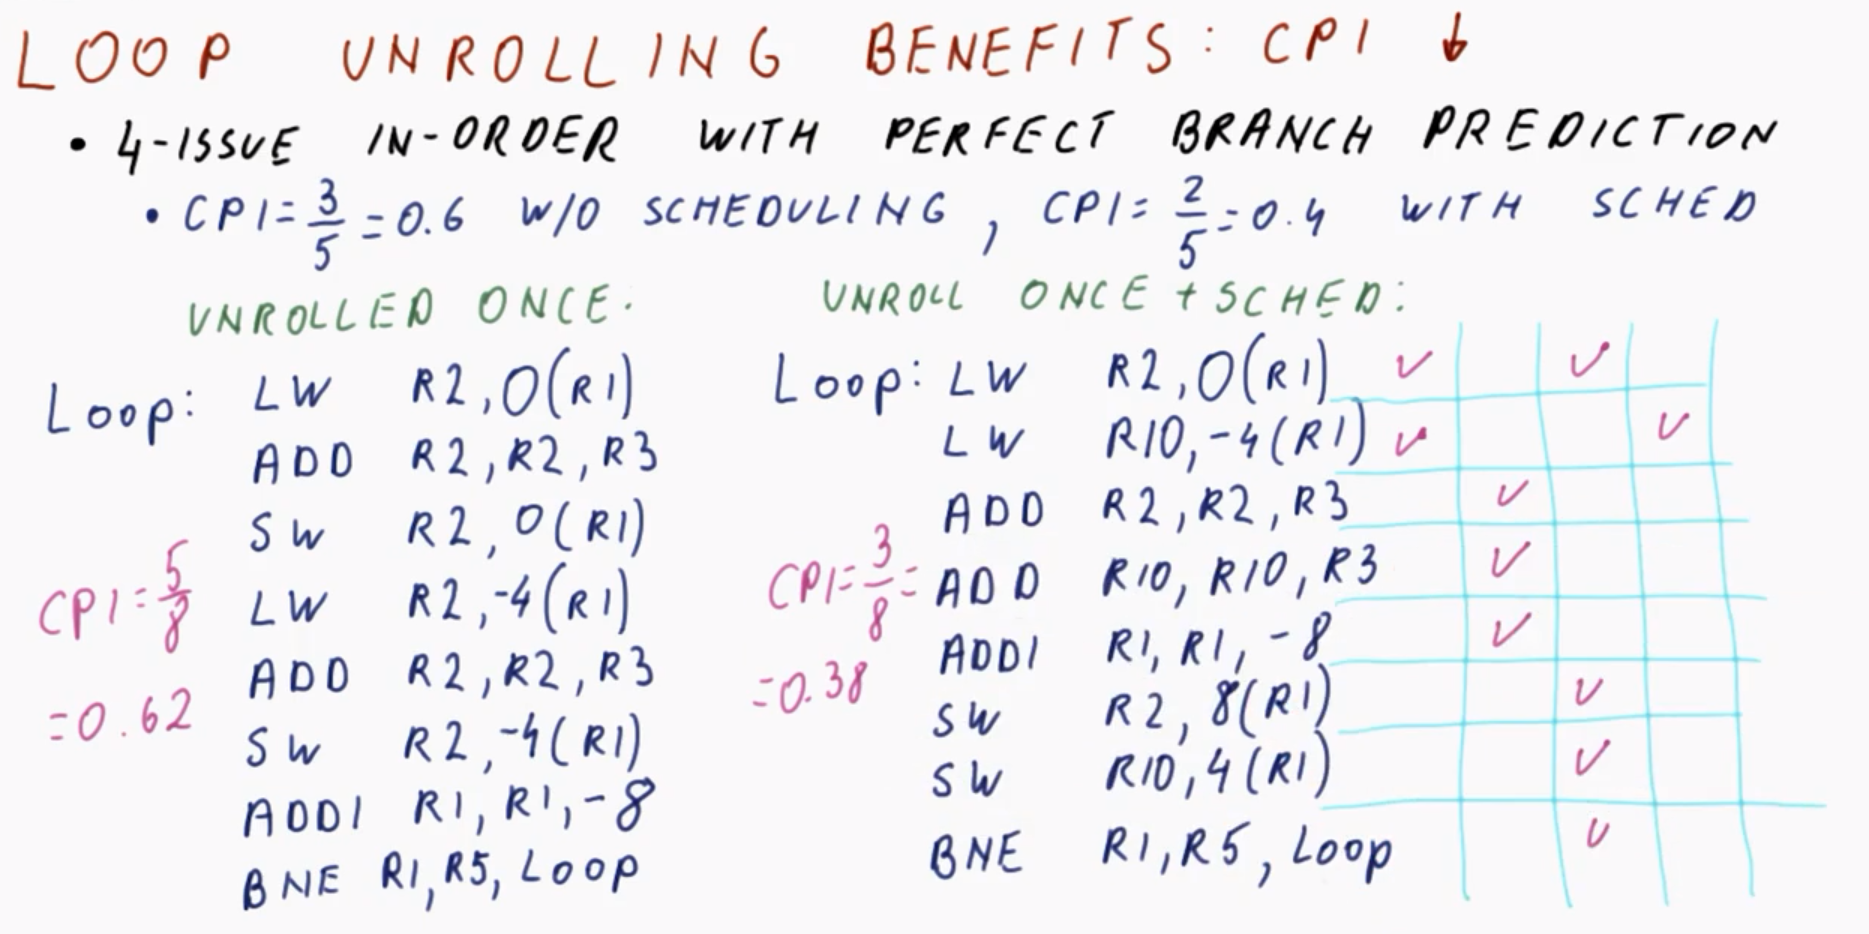 LOOP UNROLLING BENEFITS: CPI ↓
• 4-ISSUE IN-ORDER WITH PERFECT BRANCH PREDICTION
• CPI = 3/5 = 0.6 W/O SCHEDULING, CPI = 2/5 = 0.4 WITH SCHED
UNROLLED ONCE:
Loop: LW R2, 0(R1)
ADD R2, R2, R3
SW R2, 0(R1)
LW R2, -4(R1)
ADD R2, R2, R3
SW R2, -4(R1)
ADDI R1, R1, -8
BNE R1, R5, Loop
CPI = 5/8
= 0.62
UNROLL ONCE + SCHED:
Loop: LW R2, 0(R1) ✓ ✓
LW R10, -4(R1) ✓ ✓
ADD R2, R2, R3 ✓
ADD R10, R10, R3 ✓
ADDI R1, R1, -8 ✓
SW R2, 8(R1) ✓
SW R10, 4(R1) ✓
BNE R1, R5, Loop ✓
CPI = 3/8 =
= 0.38